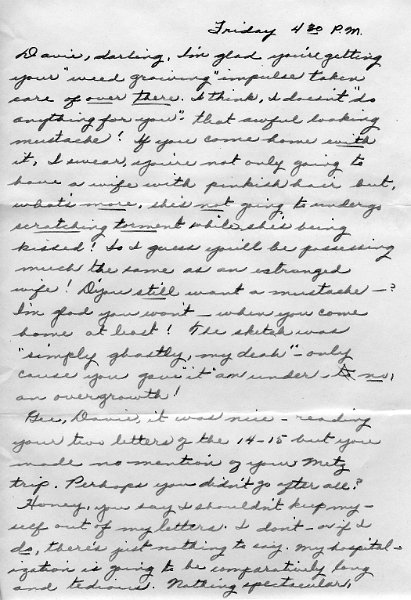 Friday 4:30 P.M.
Davie, darling, I'm glad you're getting
your "weed growing" impulse taken
care of over there. I think, I doesn't "do
anything for you" - that awful looking
mustache! If you come home with
it, I swear, you're not only going to
have a wife with pinkish hair but,
what's more, she's not going to undergo
scratching torment while she's being
kissed! So I guess you'll be possessing
much the same as an estranged
wife! D'you still want a mustache - ?
I'm glad you won't - when you come
home at least! The sketch was
"simply ghastly, my deah" - only
cause you gave "it" an under it no,
an overgrowth!
Gee, Davie, it was nice - reading
your two letters of the 14-15 but you
made no mention of your Metz
trip. Perhaps you didn't go after all?
Honey, you say I shouldn't keep my-
self out of my letters. I don't - or if I
do, there's just nothing to say. My hospital-
ization is going to be comparatively long
and tedious. Nothing spectacular,